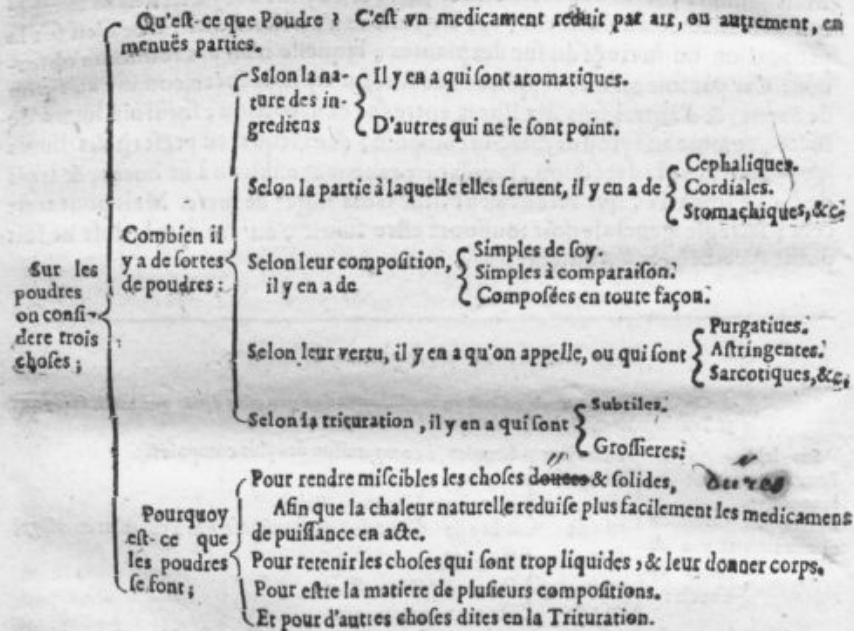 Qu'eſt-ce que Poudre ? C'eſt vn medicament reduit par art, ou autrement, en
menuës parties.
Sur les
poudres
on conſi-
dere trois
choſes ;
Combien il
y a de ſortes
de poudres :
Selon la na-
ture des in-
grediens
Il y en a qui ſont aromatiques.
D'autres qui ne le ſont point.
Selon la partie à laquelle elles ſeruent, il y en a de
Cephaliques.
Cordiales.
Stomachiques, &c.
Selon leur compoſition,
il y en a de
Simples de ſoy.
Simples à comparaiſon.
Compoſées en toute façon.
Selon leur vertu, il y en a qu'on appelle, ou qui ſont
Purgatiues.
Aſtringentes.
Sarcotiques, &c.
Selon la trituration, il y en a qui ſont
Subtiles.
Groſſieres.
Pourquoy
eſt-ce que
les poudres
ſe font ;
Pour rendre miſcibles les choſes douces & ſolides, dures
Afin que la chaleur naturelle reduiſe plus facilement les medicamens
de puiſſance en acte.
Pour retenir les choſes qui ſont trop liquides, & leur donner corps.
Pour eſtre la matiere de pluſieurs compoſitions.
Et pour d'autres choſes dites en la Trituration.